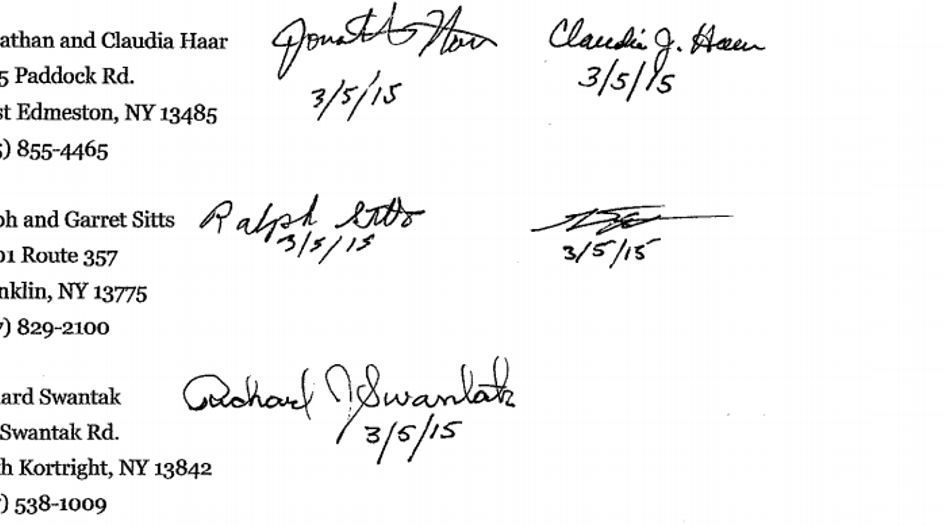 athan and Claudia Haar Jonath Haar Claudia J. Haar
5 Paddock Rd. 3/5/15 3/5/15
st Edmeston, NY 13485
5) 855-4465
ph and Garret Sitts Ralph Sitts
01 Route 357 3/5/15 3/5/15
nklin, NY 13775
7) 829-2100
ard Swantak Richard J. Swantak
Swantak Rd. 3/5/15
h Kortright, NY 13842
7) 538-1009